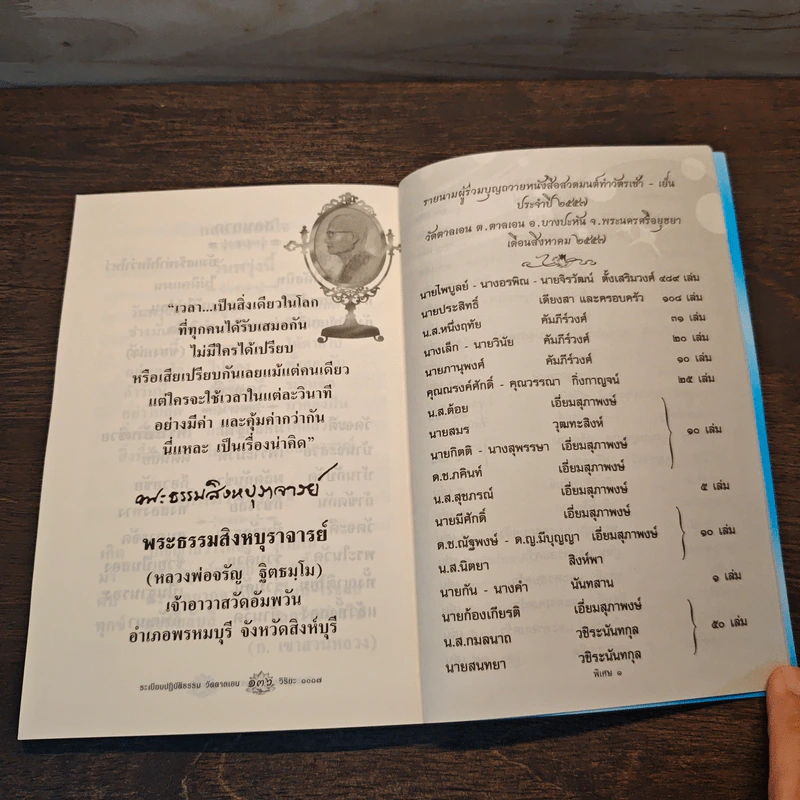 “เวลา...เป็นสิ่งเดียวในโลก
ที่ทุกคนได้รับเสมอกัน
ไม่มีใครได้เปรียบ
หรือเสียเปรียบกันเลยแม้แต่คนเดียว
แต่ใครจะใช้เวลาในแต่ละวินาที
อย่างมีค่า และคุ้มค่ากว่ากัน
นี่แหละ เป็นเรื่องน่าคิด”
พระธรรมสิงหบุราจารย์
พระธรรมสิงหบุราจารย์
(หลวงพ่อจรัญ ฐิตธมฺโม)
เจ้าอาวาสวัดอัมพวัน
อำเภอพรหมบุรี จังหวัดสิงห์บุรี
ระเบียบปฏิบัติธรรม วัดตาลเอน ๑๓๖ วิริยะ ๑๐๑๗
รายนามผู้ร่วมบุญถวายหนังสือสวดมนต์ทำวัตรเช้า - เย็น
ประจำปี ๒๕๕๗
วัดตาลเอน ต.ตาลเอน อ.บางปะหัน จ.พระนครศรีอยุธยา
เดือนสิงหาคม ๒๕๕๗
นายไพบูลย์ - นางอรพิณ - นายจิรวัฒน์ ตั้งเสริมวงศ์ ๔๘๙ เล่ม
นายประสิทธิ์ เตียงสา และครอบครัว ๑๐๘ เล่ม
น.ส.หนึ่งฤทัย คัมภีร์วงศ์ ๓๑ เล่ม
นางเล็ก - นายวินัย คัมภีร์วงศ์ ๒๐ เล่ม
นายภานุพงศ์ คัมภีร์วงศ์ ๑๐ เล่ม
คุณณรงค์ศักดิ์ - คุณวรรณา กิ่งกาญจน์ ๒๕ เล่ม
น.ส.ต้อย เอี่ยมสุภาพงษ์
นายสมร วุฒทะสิงห์
นายกิตติ - นางสุพรรษา เอี่ยมสุภาพงษ์ ๑๐ เล่ม
ด.ช.ภคินท์ เอี่ยมสุภาพงษ์
น.ส.สุชภรณ์ เอี่ยมสุภาพงษ์ ๕ เล่ม
นายมีศักดิ์ เอี่ยมสุภาพงษ์
ด.ช.ณัฐพงษ์ - ด.ญ.มีบุญญา เอี่ยมสุภาพงษ์ ๑๐ เล่ม
น.ส.นิตยา สิงห์พา
นายกัน - นางคำ นันทสาน ๑ เล่ม
นายก้องเกียรติ เอี่ยมสุภาพงษ์
น.ส.กมลนาถ วชิระนันทกุล ๕๐ เล่ม
นายสนทยา วชิระนันทกุล
พิเศษ ๑